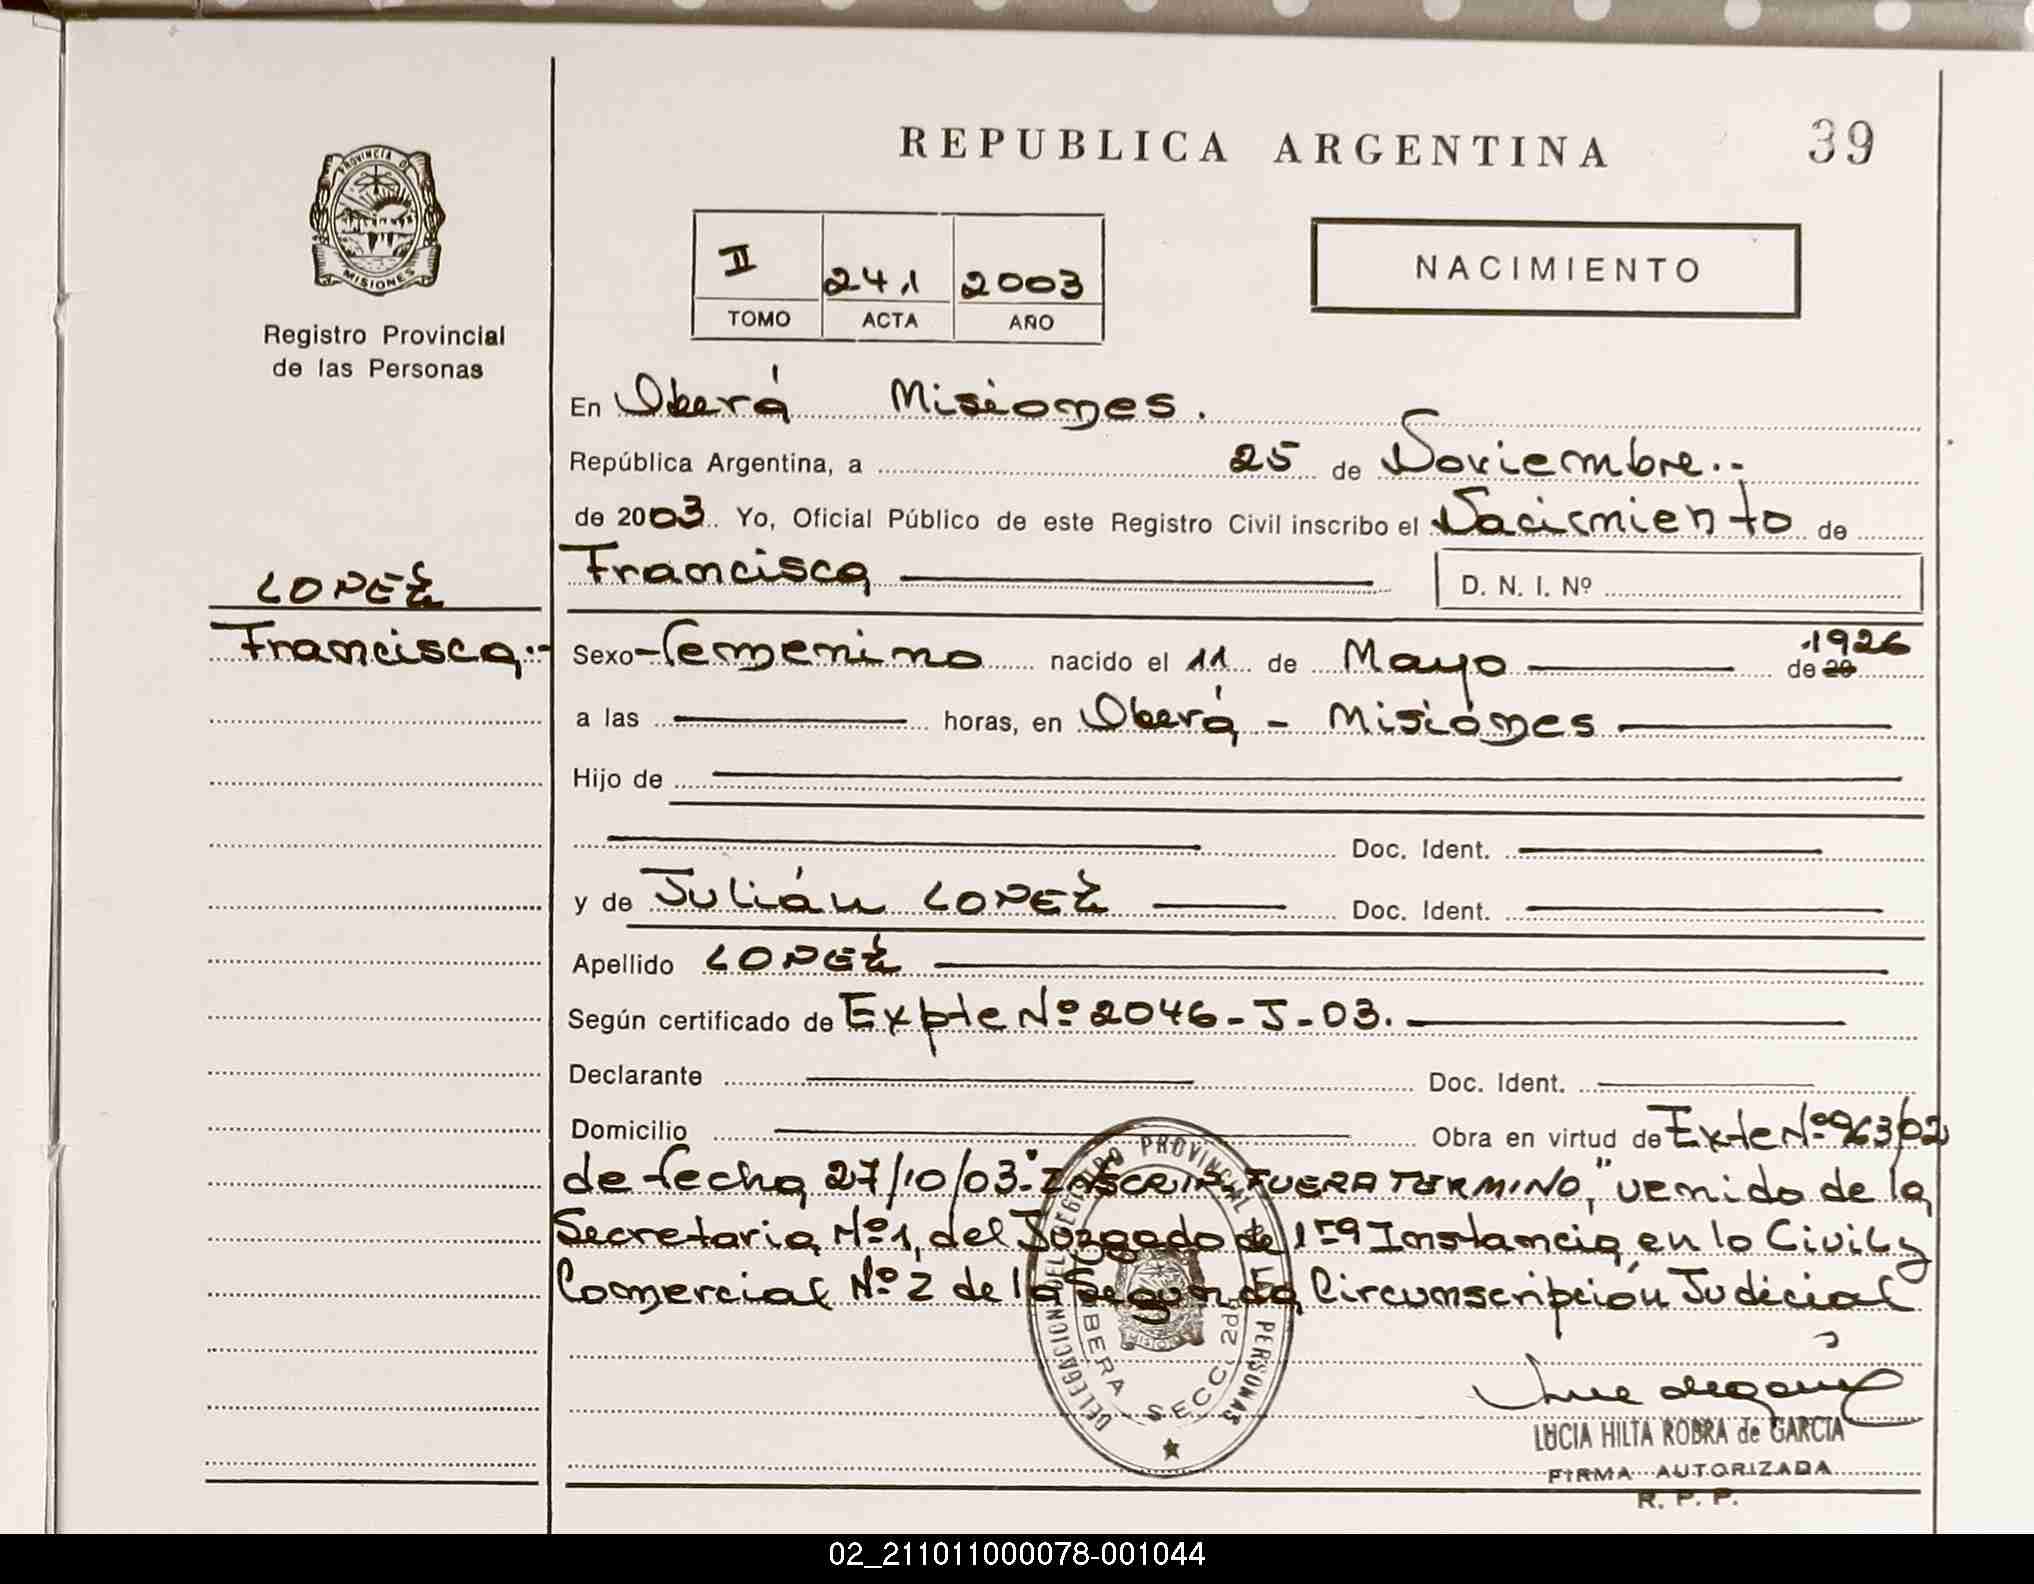 REPUBLICA ARGENTINA
39
PROVINCIA DE
MISIONES
Registro Provincial
de las Personas
II 241 2003
TOMO ACTA AÑO
NACIMIENTO
En Oberá Misiones.
República Argentina, a 25 de Noviembre.-
de 2003. Yo, Oficial Público de este Registro Civil inscribo el Nacimiento de
Francisca D. N. I. Nº
LOPEZ
Francisca.-
Sexo Femenino nacido el 11 de Mayo de 20 1926
a las horas, en Oberá - Misiones
Hijo de
Doc. Ident.
y de Julián LOPEZ Doc. Ident.
Apellido LOPEZ
Según certificado de Expte Nº 2046-J-03.
Declarante Doc. Ident.
Domicilio Obra en virtud de Exte Nº 963/02
de fecha 27/10/03. "INSCRIP. FUERA TERMINO," venido de la
Secretaria Nº 1, del Juzgado de 1ra Instancia en lo Civil y
Comercial Nº 2 de la Segunda Circunscripción Judicial
DELEGACION DEL REGISTRO PROVINCIAL DE LAS PERSONAS
OBERA SECC. 2da
LUCIA HILTA ROBRA de GARCIA
FIRMA AUTORIZADA
R. P. P.
02_211011000078-001044